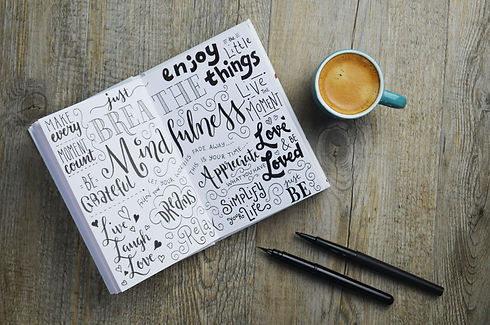 just
BREATHE
MAKE
every
MOMENT
count
BE
Grateful
Mindfulness
enjoy
the
Little
things
LIVE
the
MOMENT
LET YOUR WORRIES FADE AWAY...
THIS IS YOUR TIME...
Appreciate
WHAT YOU HAVE
Love
& BE
Loved
DREAMS
Relax
SIMPLIFY
your
LIFE
just
BE
Live
Laugh
Love